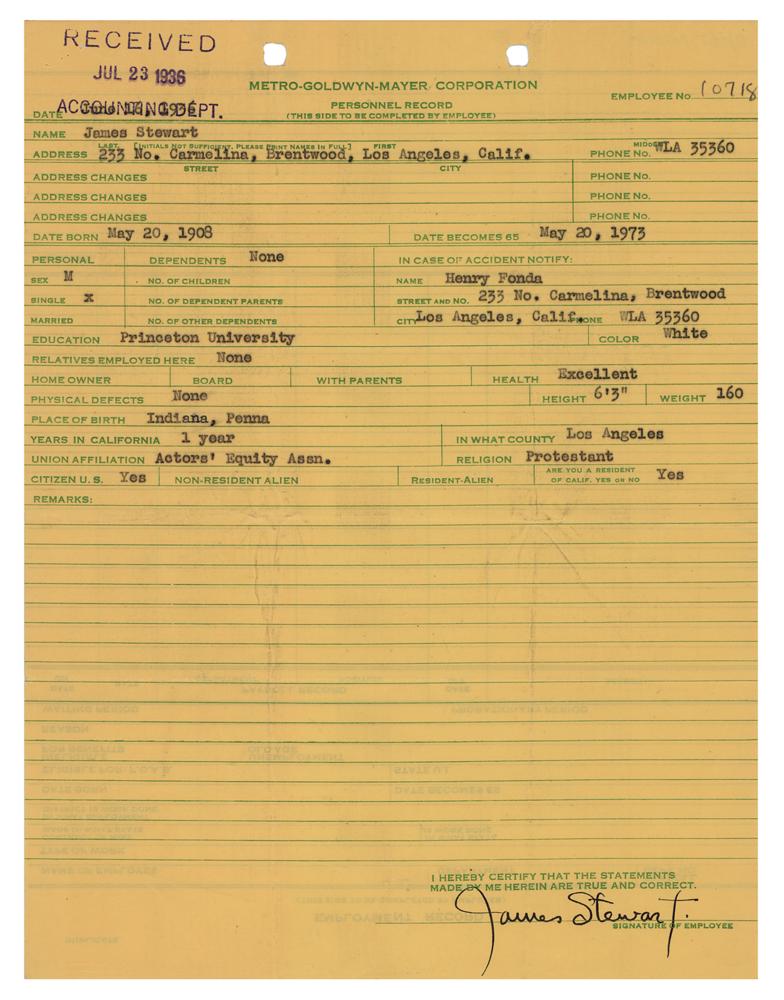 RECEIVED
JUL 23 1936
ACCOUNTING DEPT.
METRO-GOLDWYN-MAYER CORPORATION
EMPLOYEE No. 10718
PERSONNEL RECORD
DATE
(THIS SIDE TO BE COMPLETED BY EMPLOYEE)
NAME James Stewart
LAST [INITIALS NOT SUFFICIENT, PLEASE PRINT NAMES IN FULL] FIRST
ADDRESS 233 No. Carmelina, Brentwood, Los Angeles, Calif. PHONE No. WLA 35360
STREET CITY
ADDRESS CHANGES PHONE No.
ADDRESS CHANGES PHONE No.
ADDRESS CHANGES PHONE No.
DATE BORN May 20, 1908 DATE BECOMES 65 May 20, 1973
PERSONAL DEPENDENTS None IN CASE OF ACCIDENT NOTIFY:
SEX M NO. OF CHILDREN NAME Henry Fonda
SINGLE x NO. OF DEPENDENT PARENTS STREET AND NO. 233 No. Carmelina, Brentwood
MARRIED NO. OF OTHER DEPENDENTS CITY Los Angeles, Calif. PHONE WLA 35360
EDUCATION Princeton University COLOR White
RELATIVES EMPLOYED HERE None
HOME OWNER BOARD WITH PARENTS HEALTH Excellent
PHYSICAL DEFECTS None HEIGHT 6'3" WEIGHT 160
PLACE OF BIRTH Indiana, Penna
YEARS IN CALIFORNIA 1 year IN WHAT COUNTY Los Angeles
UNION AFFILIATION Actors' Equity Assn. RELIGION Protestant
CITIZEN U. S. Yes NON-RESIDENT ALIEN RESIDENT-ALIEN ARE YOU A RESIDENT OF CALIF. YES OR NO Yes
REMARKS:
I HEREBY CERTIFY THAT THE STATEMENTS
MADE BY ME HEREIN ARE TRUE AND CORRECT.
James Stewart.
SIGNATURE OF EMPLOYEE